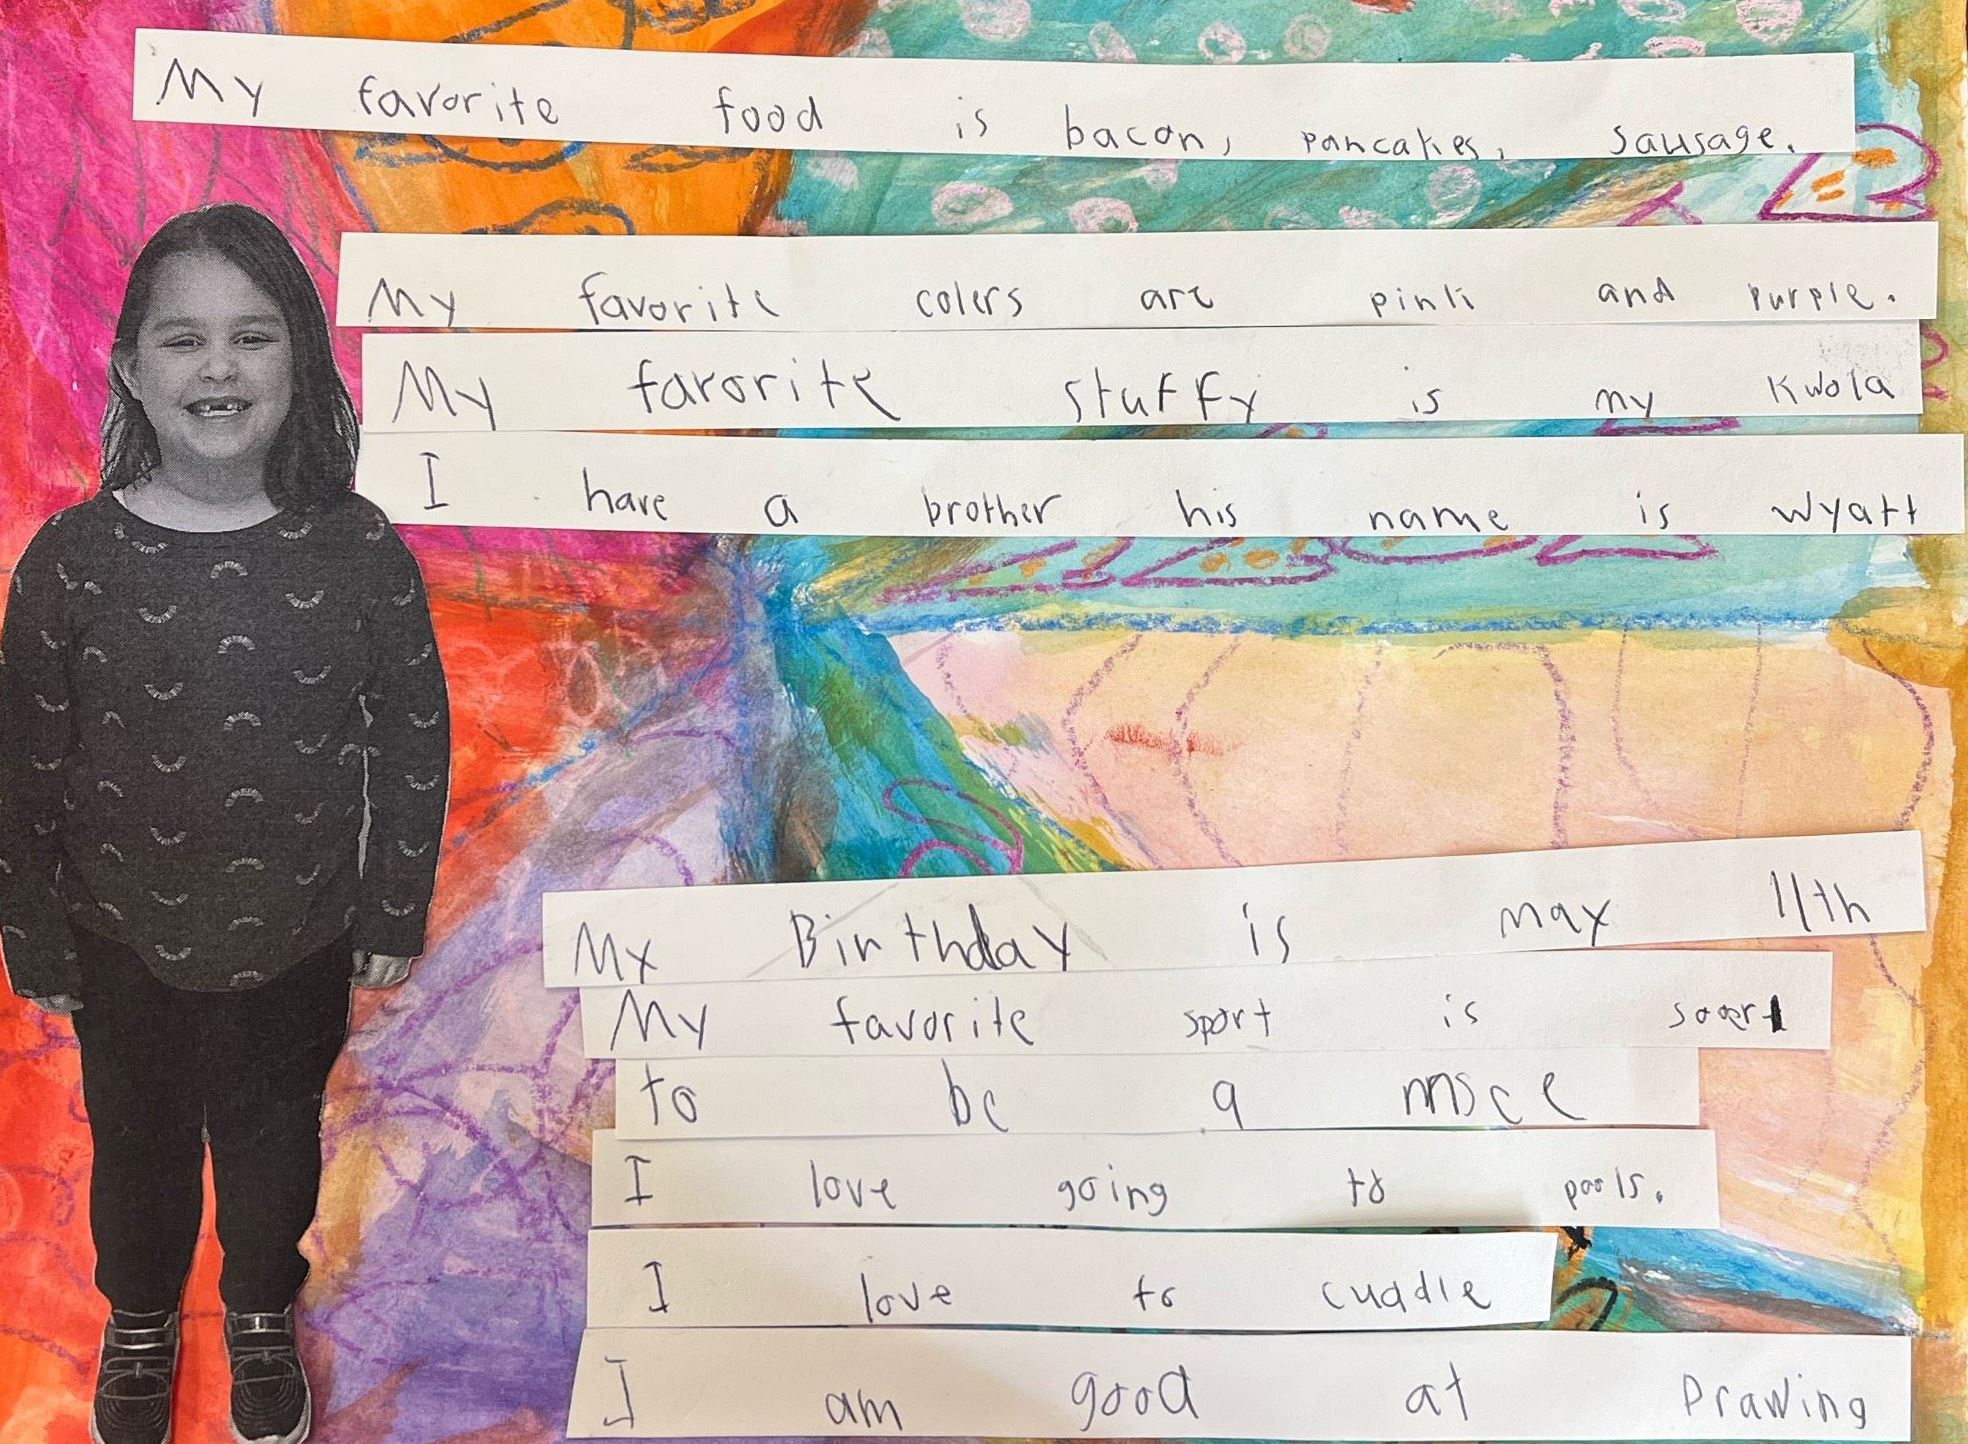 My favorite food is bacon, pancakes, sausage.
My favorite colers are pink and purple.
My favorite stuffy is my Kwola
I have a brother his name is Wyatt
My Birthday is may 11th
My favorite sport is
to be a
I love going to pools.
I love to cuddle
I am good at Drawing